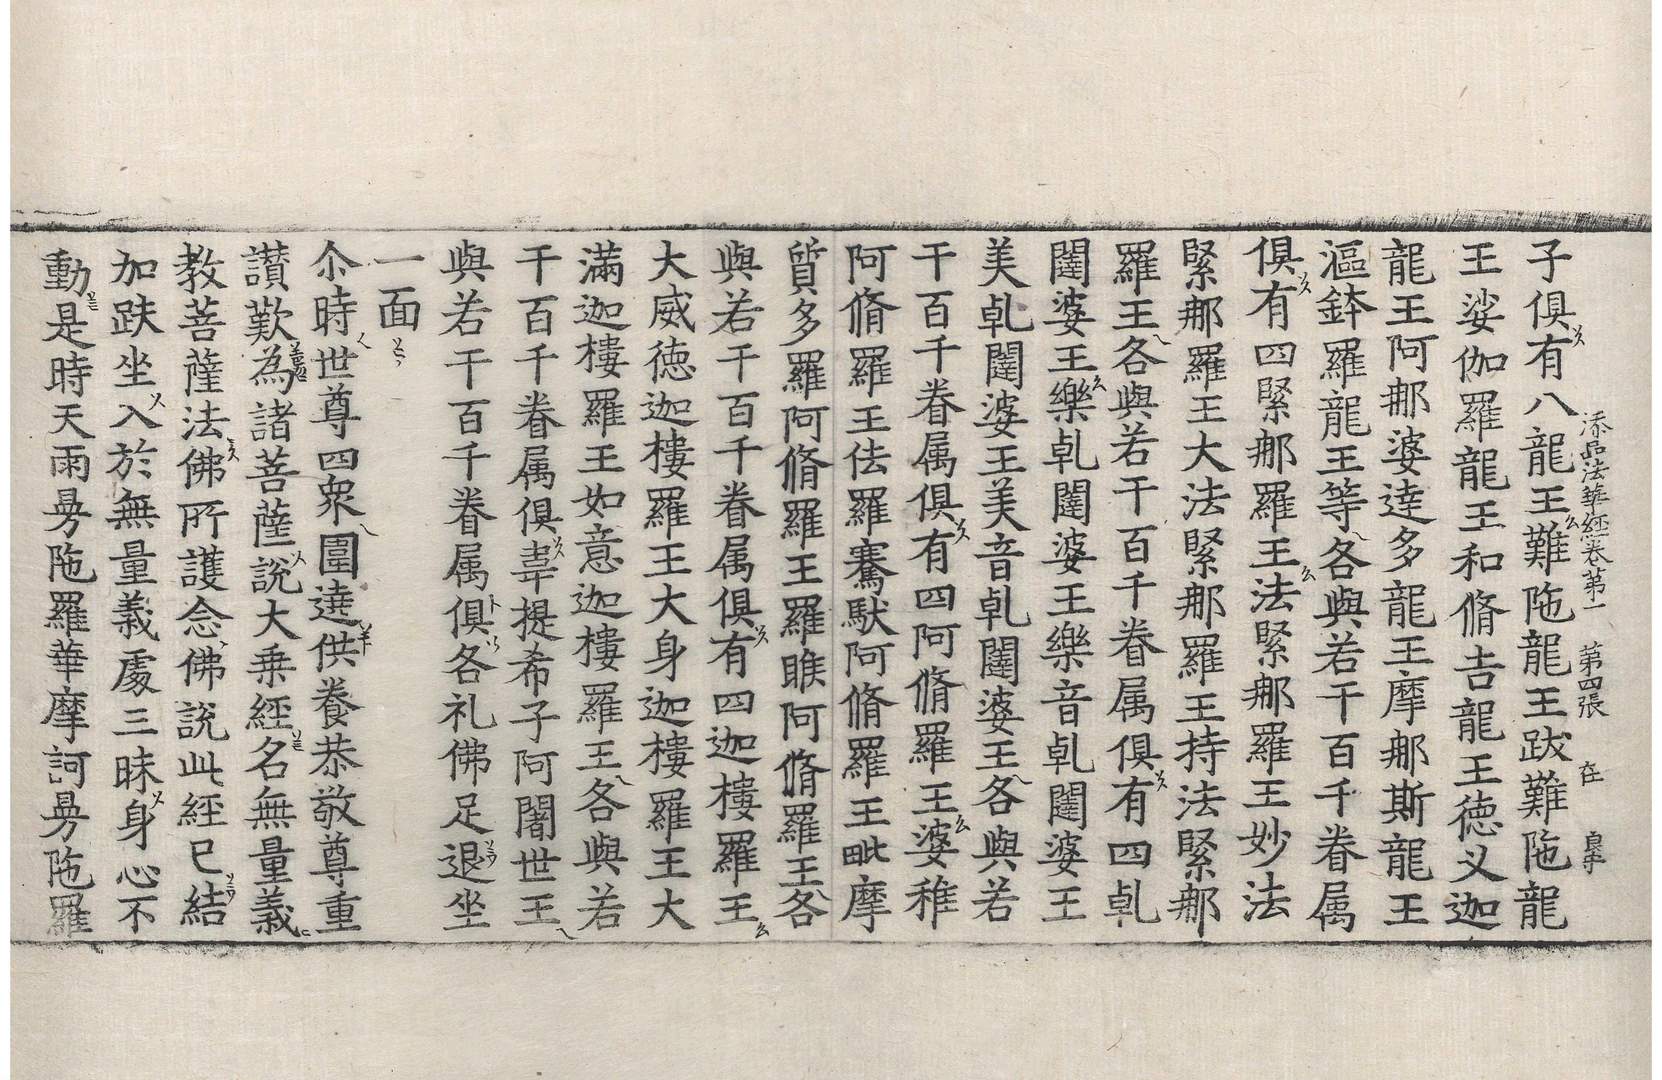 添品法華経卷第一 第四張 在
子俱有八龍王難陁龍王跋難陁龍
王娑伽羅龍王和脩吉龍王徳义迦
龍王阿那婆達多龍王摩那斯龍王
漚鉢羅龍王等各與若干百千眷属
俱有四緊那羅王法緊那羅王妙法
緊那羅王大法緊那羅王持法緊那
羅王各與若干百千眷属俱有四乹
闥婆王樂乹闥婆王樂音乹闥婆王
美乹闥婆王美音乹闥婆王各與若
干百千眷属俱有四阿脩羅王婆稚
阿脩羅王佉羅騫馱阿脩羅王毗摩
質多羅阿脩羅王羅睺阿脩羅王各
與若干百千眷属俱有四迦樓羅王
大威徳迦樓羅王大身迦樓羅王大
滿迦樓羅王如意迦樓羅王各與若
千百千眷属俱韋提希子阿闍世王
與若干百千眷属俱各礼佛足退坐
一面
尒時世尊四衆圍遶供養恭敬尊重
讃歎為諸菩薩說大乗經名無量義
教菩薩法佛所護念佛說此經已結
加趺坐入於無量義處三昧身心不
動是時天雨曼陁羅華摩訶曼陁羅